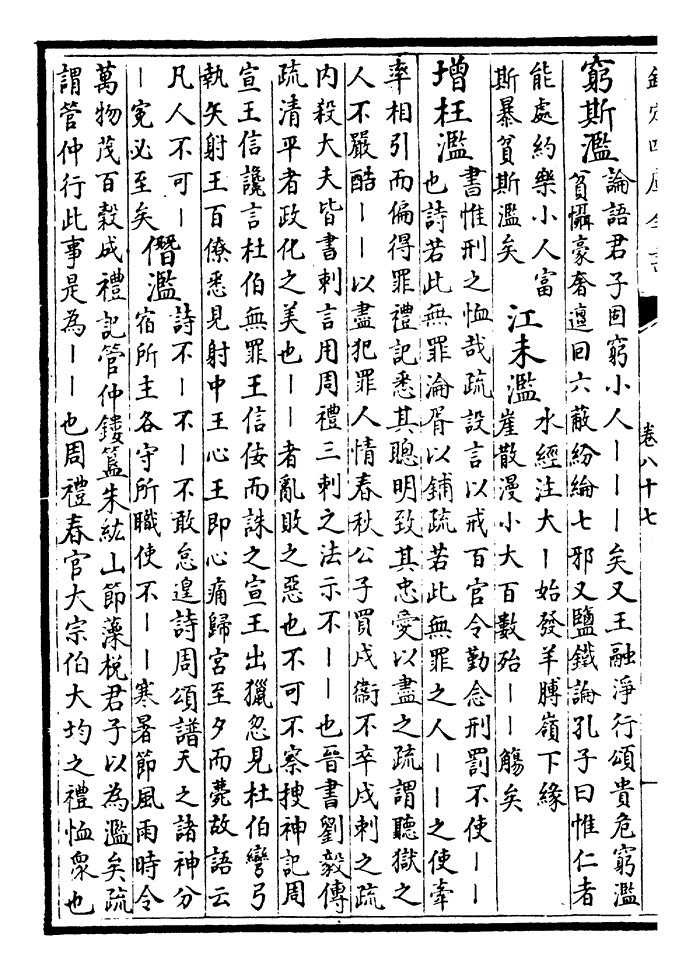 欽定四庫全書
卷八十七
窮斯濫
論語君子固窮小人｜｜｜矣又王融淨行頌貴危窮濫
貧懾豪奢邅回六蔽紛綸七邪又鹽鐵論孔子曰惟仁者
能處約樂小人富
斯暴貧斯濫矣
江未濫
水經注大｜始發羊膊嶺下緣
崖散漫小大百數殆｜｜觴矣
增枉濫
書惟刑之恤哉疏設言以戒百官令勤念刑罰不使｜｜
也詩若此無罪淪胥以鋪疏若此無罪之人｜｜之使牽
率相引而偏得罪禮記悉其聰明致其忠愛以盡之疏謂聽獄之
人不嚴酷｜｜以盡犯罪人情春秋公子買戍衛不卒戍刺之疏
內殺大夫皆書刺言用周禮三刺之法示不｜｜也晉書劉毅傳
疏清平者政化之美也｜｜者亂敗之惡也不可不察搜神記周
宣王信讒言杜伯無罪王信佞而誅之宣王出獵忽見杜伯彎弓
執矢射王百僚悉見射中王心王即心痛歸宮至夕而薨故語云
凡人不可｜
｜寃必至矣
僭濫
詩不｜不｜不敢怠遑詩周頌譜天之諸神分
宿所主各守所職使不｜｜寒暑節風雨時令
萬物茂百穀成禮記管仲鏤簋朱紘山節藻梲君子以為濫矣疏
謂管仲行此事是為｜｜也周禮春官大宗伯大均之禮恤衆也